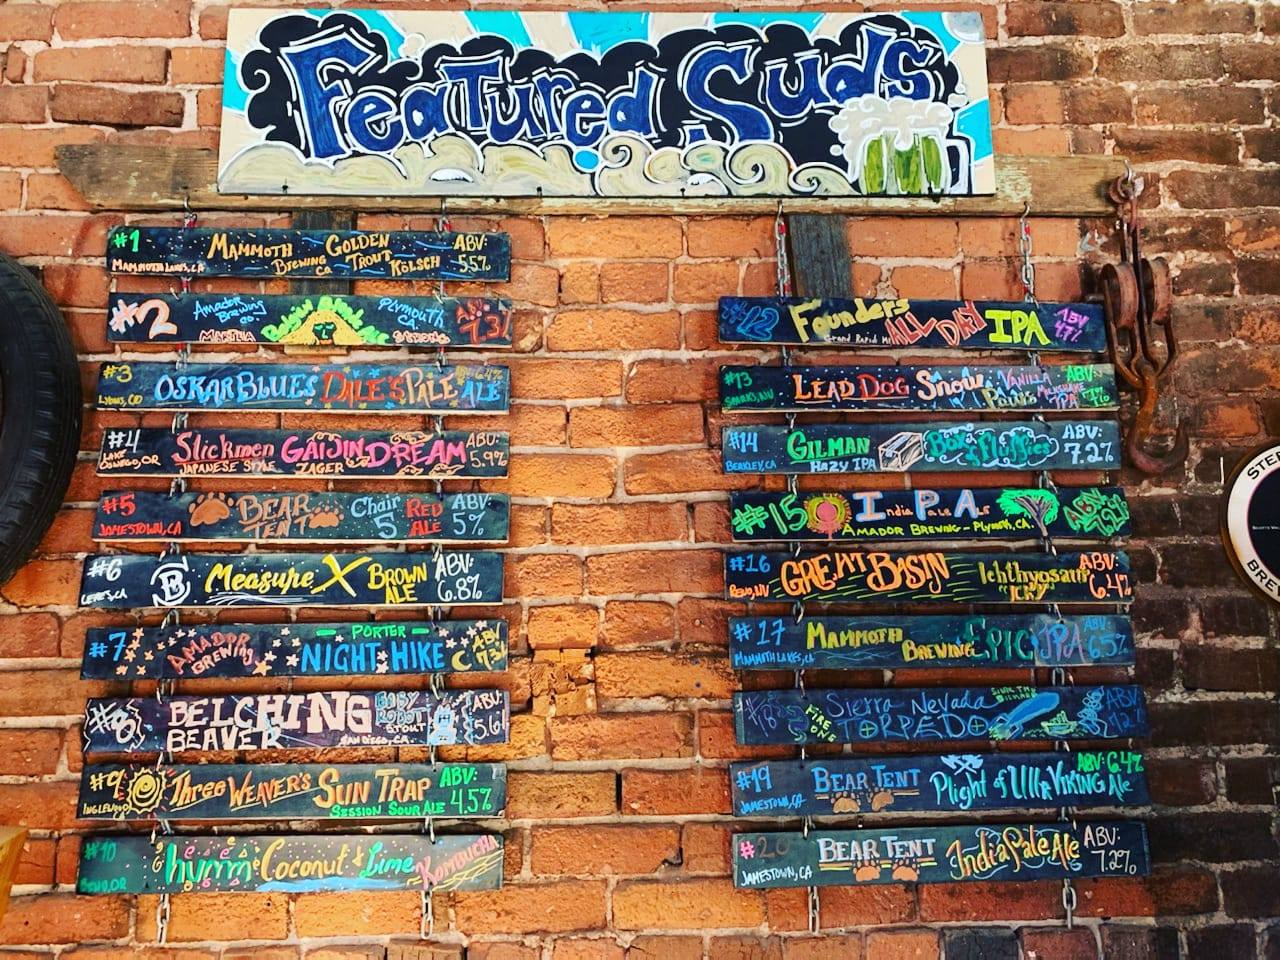 Featured Suds
#1 Mammoth Brewing Co Golden Trout Kölsch ABV: 5.5%
Mammoth Lakes, CA
#2 Amador Brewing Co. Plymouth CA. 7.3%
Martha
#3 OSKAR BLUES DALE'S PALE ALE
Lyons, CO
#4 Slickmen GAIJIN DREAM ABV: 5.9%
LAKE OSWEGO, OR JAPANESE STYLE ZAGER
#5 BEAR TENT Chair 5 RED ALE ABV: 5%
JAMESTOWN, CA
#6 Measure X BROWN ALE ABV: 6.8%
#7 AMADOR BREWING PORTER NIGHT HIKE ABV
#8 BELCHING BEAVER BABY ROBOT STOUT ABV: 5.6%
SAN DIEGO, CA.
#9 Three WEAVER'S SUN TRAP ABV: 4.5%
INGLEWOOD SESSION SOUR ALE
#10 humm Coconut & Lime KOMBUCHA
#12 Founders ALL DAY IPA ABV 4.7%
Grand Rapids MI
#13 LEAD DOG Snow Pants VANILLA MILKSHAKE IPA ABV:
SPARKS, NV
#14 GILMAN Box of fluffies ABV: 7.2%
BERKLEY, CA HAZY IPA
#15 India Pale Ale ABV
AMADOR BREWING - Plymouth, CA.
#16 GREAT BASIN Ichthyosaur "ICKY" ABV: 6.4%
RENO, NV
#17 MAMMOTH BREWING EPIC IPA ABV: 6.5%
MAMMOTH LAKES, CA
#18 FIRE ONE Sierra Nevada TORPEDO SINK THE BISMARK ABV: 7.2%
#19 BEAR TENT Plight of Ulla VIKING Ale ABV: 6.4%
JAMESTOWN, CA
#20 BEAR TENT India Pale Ale ABV: 7.2%
JAMESTOWN, CA